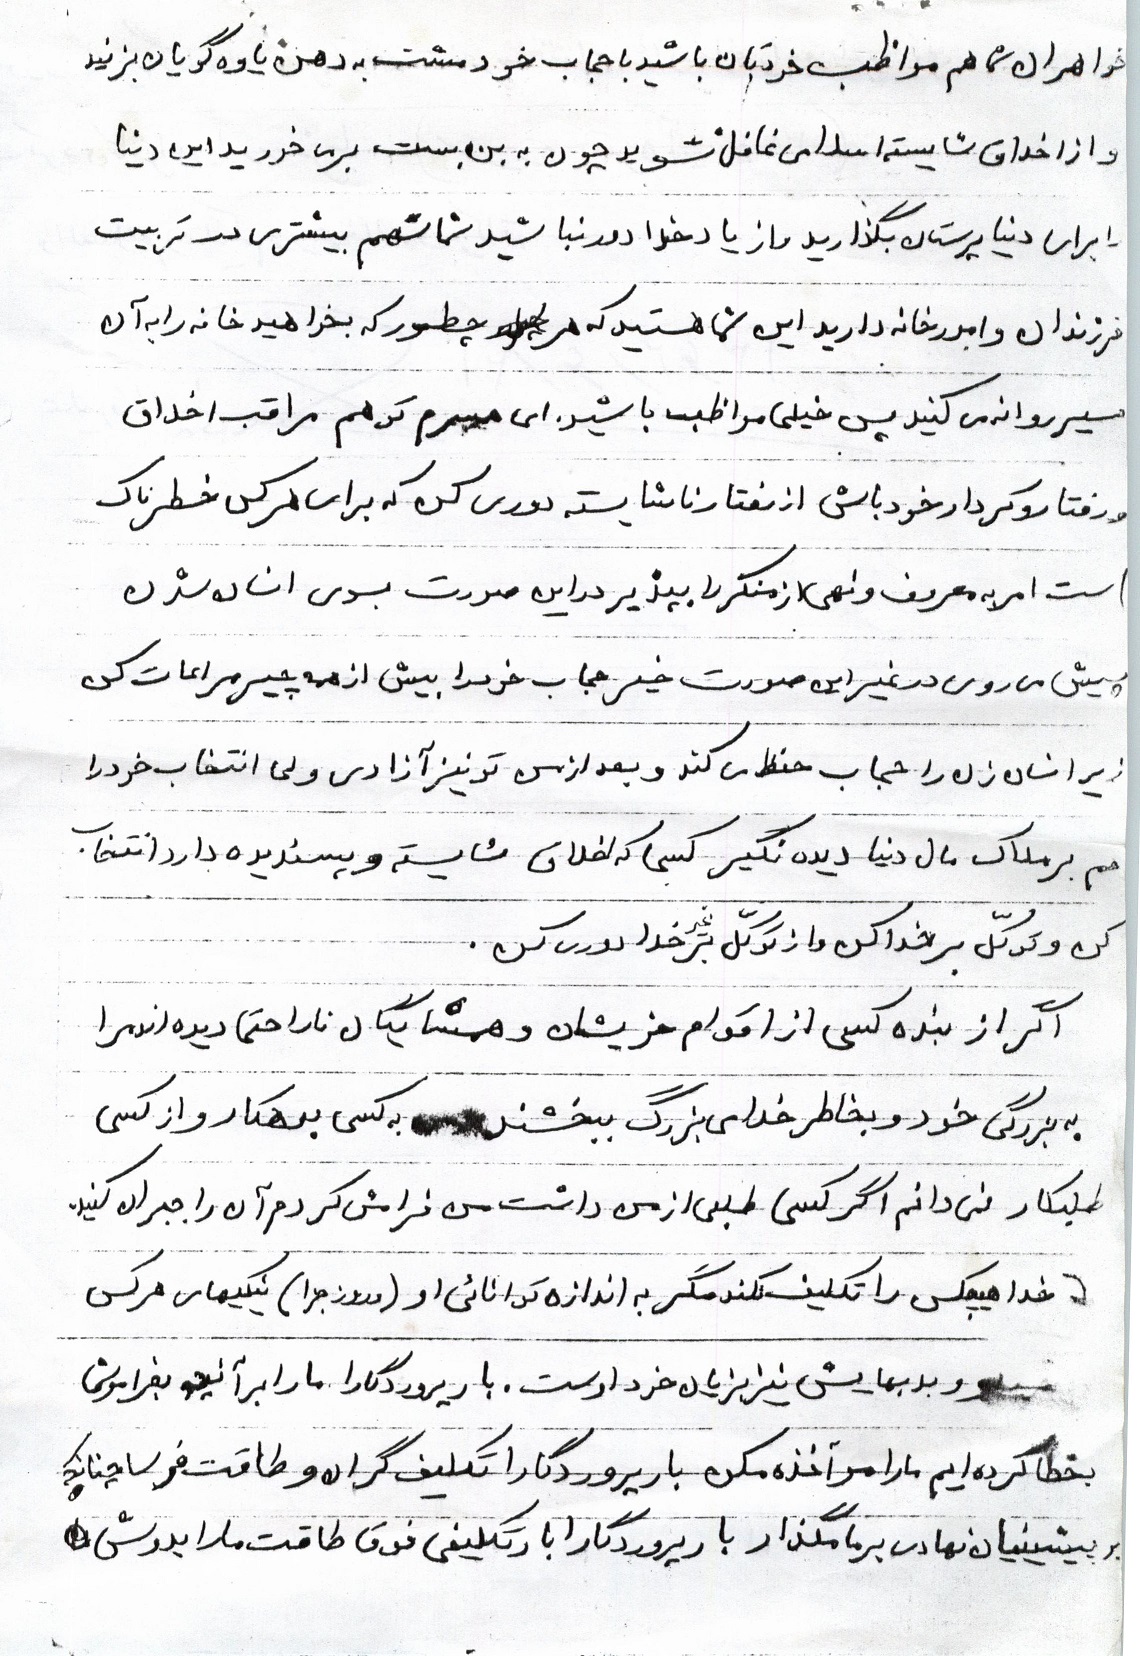 خواهران شما هم مواظب خودتان باشید با حجاب خود مشت به دهن یاوه گویان بزنید
و از اخلاق شایسته اسلامی غافل نشوید چون به بن بست برمی خورید این دنیا
را برای دنیا پرستان بگذارید و از یاد خدا دور نباشید شما سهم بیشتری در تربیت
فرزندان و امور خانه دارید این شما هستید که هر چطور که بخواهید خانه را به آن
مسیر روانه می کنید پس خیلی مواظب باشید. ای همسرم تو هم مراقب اخلاق
و رفتار و کردار خود باش از رفتار ناشایسته دوری کن که برای هر کس خطرناک
است امر به معروف و نهی از منکر را بپذیر در این صورت بسوی انسان شدن
پیش می روی در غیر این صورت خیر حجاب خود را بیش از همه چیز مراعات کن
زیرا انسان زن را حجاب حفظ می کند و بعد از من تو نیز آزادی ولی انتخاب خود را
هم بر ملاک مال دنیا دیده نگیر کسی که اخلاق شایسته و پسندیده دارد انتخاب
کن و توکّل بر خدا کن و از توکّل بر غیر خدا دوری کن .
اگر از بنده کسی از اقوام خویشان و همسایگان ناراحتی دیده اند مرا
به بزرگی خود و بخاطر خدای بزرگ ببخشند به کسی بدهکار و از کسی
طلبکار نمی دانم اگر کسی طلبی از من داشت من فراموش کردم آن را جبران کنید.
خدا هیچکس را تکلیف نکند مگر به اندازه توانائی او (روز جزا) نیکیهای هر کس
و بدیهایش نیز بزیان خود اوست . بار پروردگارا ما را بر آنچه بفراموشی
بخطا کرده ایم ما را مواخذه مکن بار پروردگارا تکلیف گران و طاقت فرسا چنانکه
بر پیشینیان نهادی بر ما مگذار بار پروردگارا بار تکلیفی فوق طاقت ما را بدوش